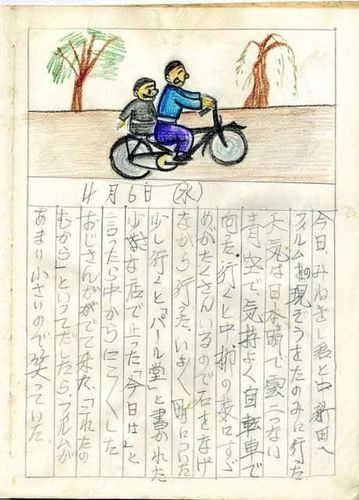 4月6日(水)
今日みねぎし君と中新田へ
フィルム現ぞうをたのみに行った
天気は日本晴で雲一つない
青空で、気持よく自転車で
向った。行くと中柳の葉にすゞ
めがたくさんいるので石をなげ
ながら行った、いよく町についた
少し行くと「パール堂」と書かれた
小さな店で止った「今日は」と
言ったら中からにこくした
おじさんがでて来た、「これたの
むから」といってだしたら、フィルムが
あまり小さいので笑っていた。